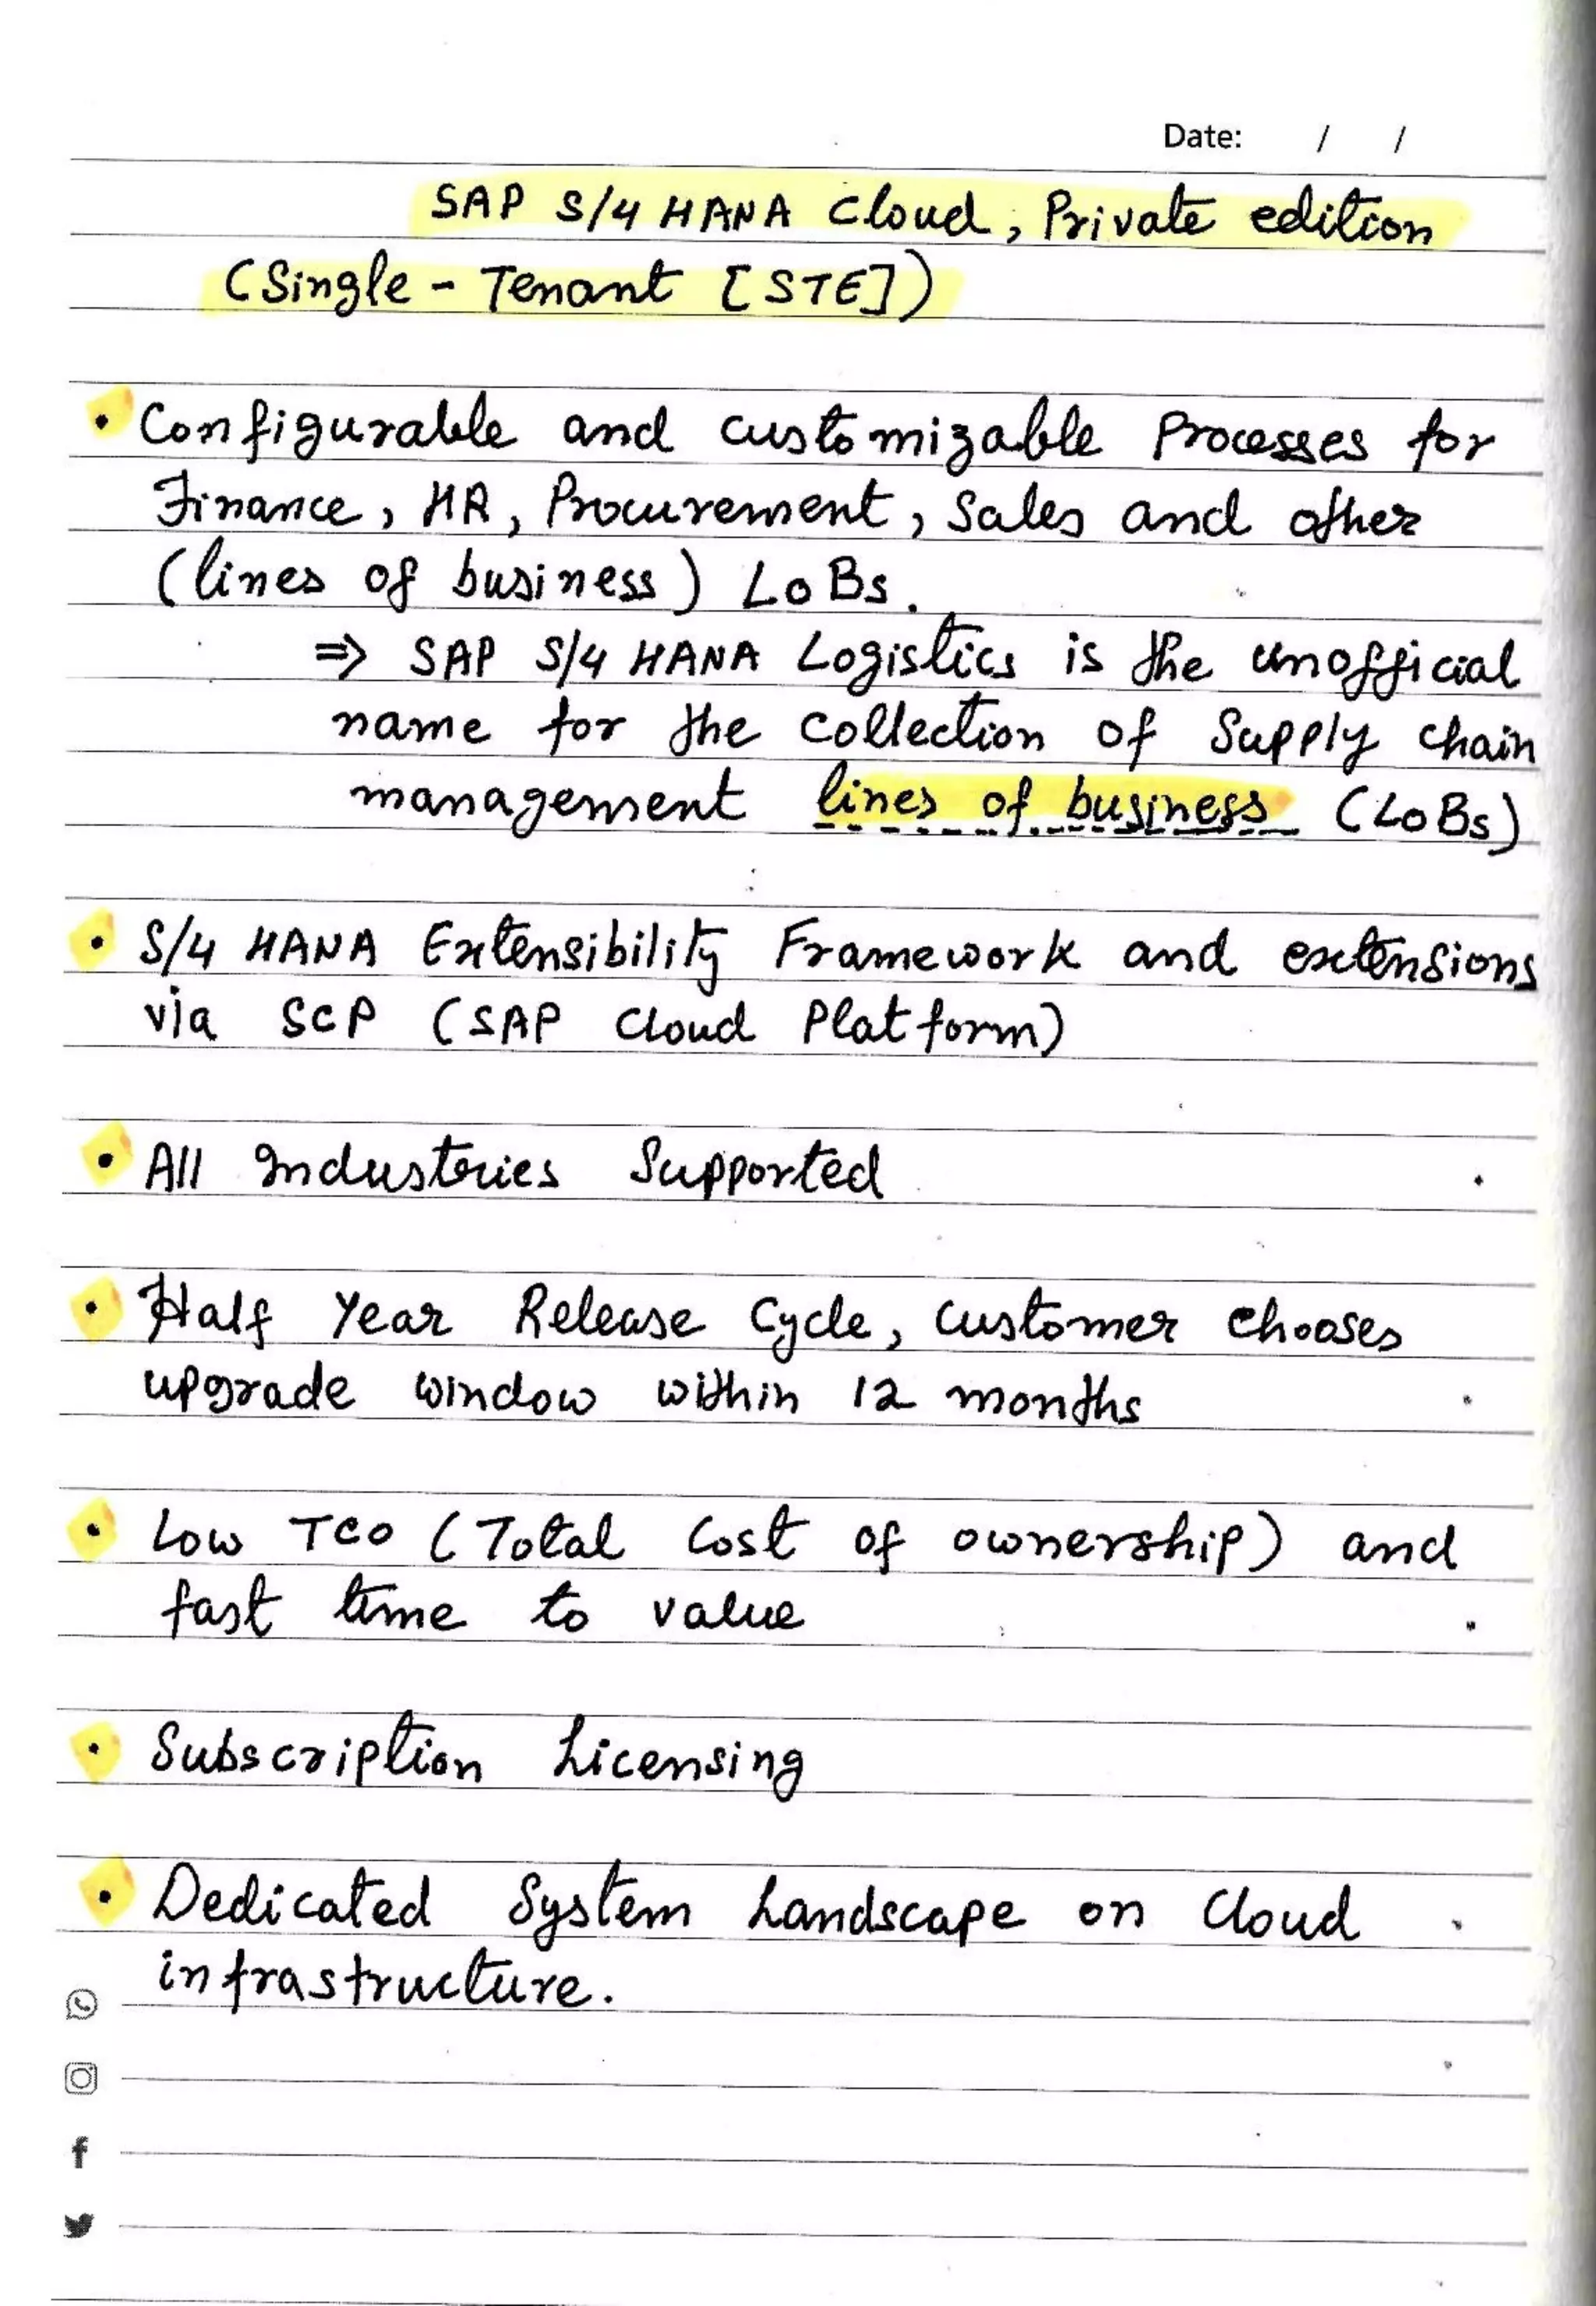 Date: / /
SAP S/4 HANA Cloud, Private edition
(Single - Tenant [STE])
• Configurable and customizable Processes for
Finance, HR, Procurement, Sales and other
(lines of business) LoBs.
⇒ SAP S/4 HANA Logistics is the unofficial
name for the collection of Supply chain
management lines of business (LoBs)
• S/4 HANA Extensibility Framework and extensions
via SCP (SAP Cloud Platform)
• All Industries Supported
• Half Year Release Cycle, customer chooses
upgrade window within 12 months
• Low TCO (Total Cost of ownership) and
fast time to value
• Subscription Licensing
• Dedicated System Landscape on Cloud
infrastructure.